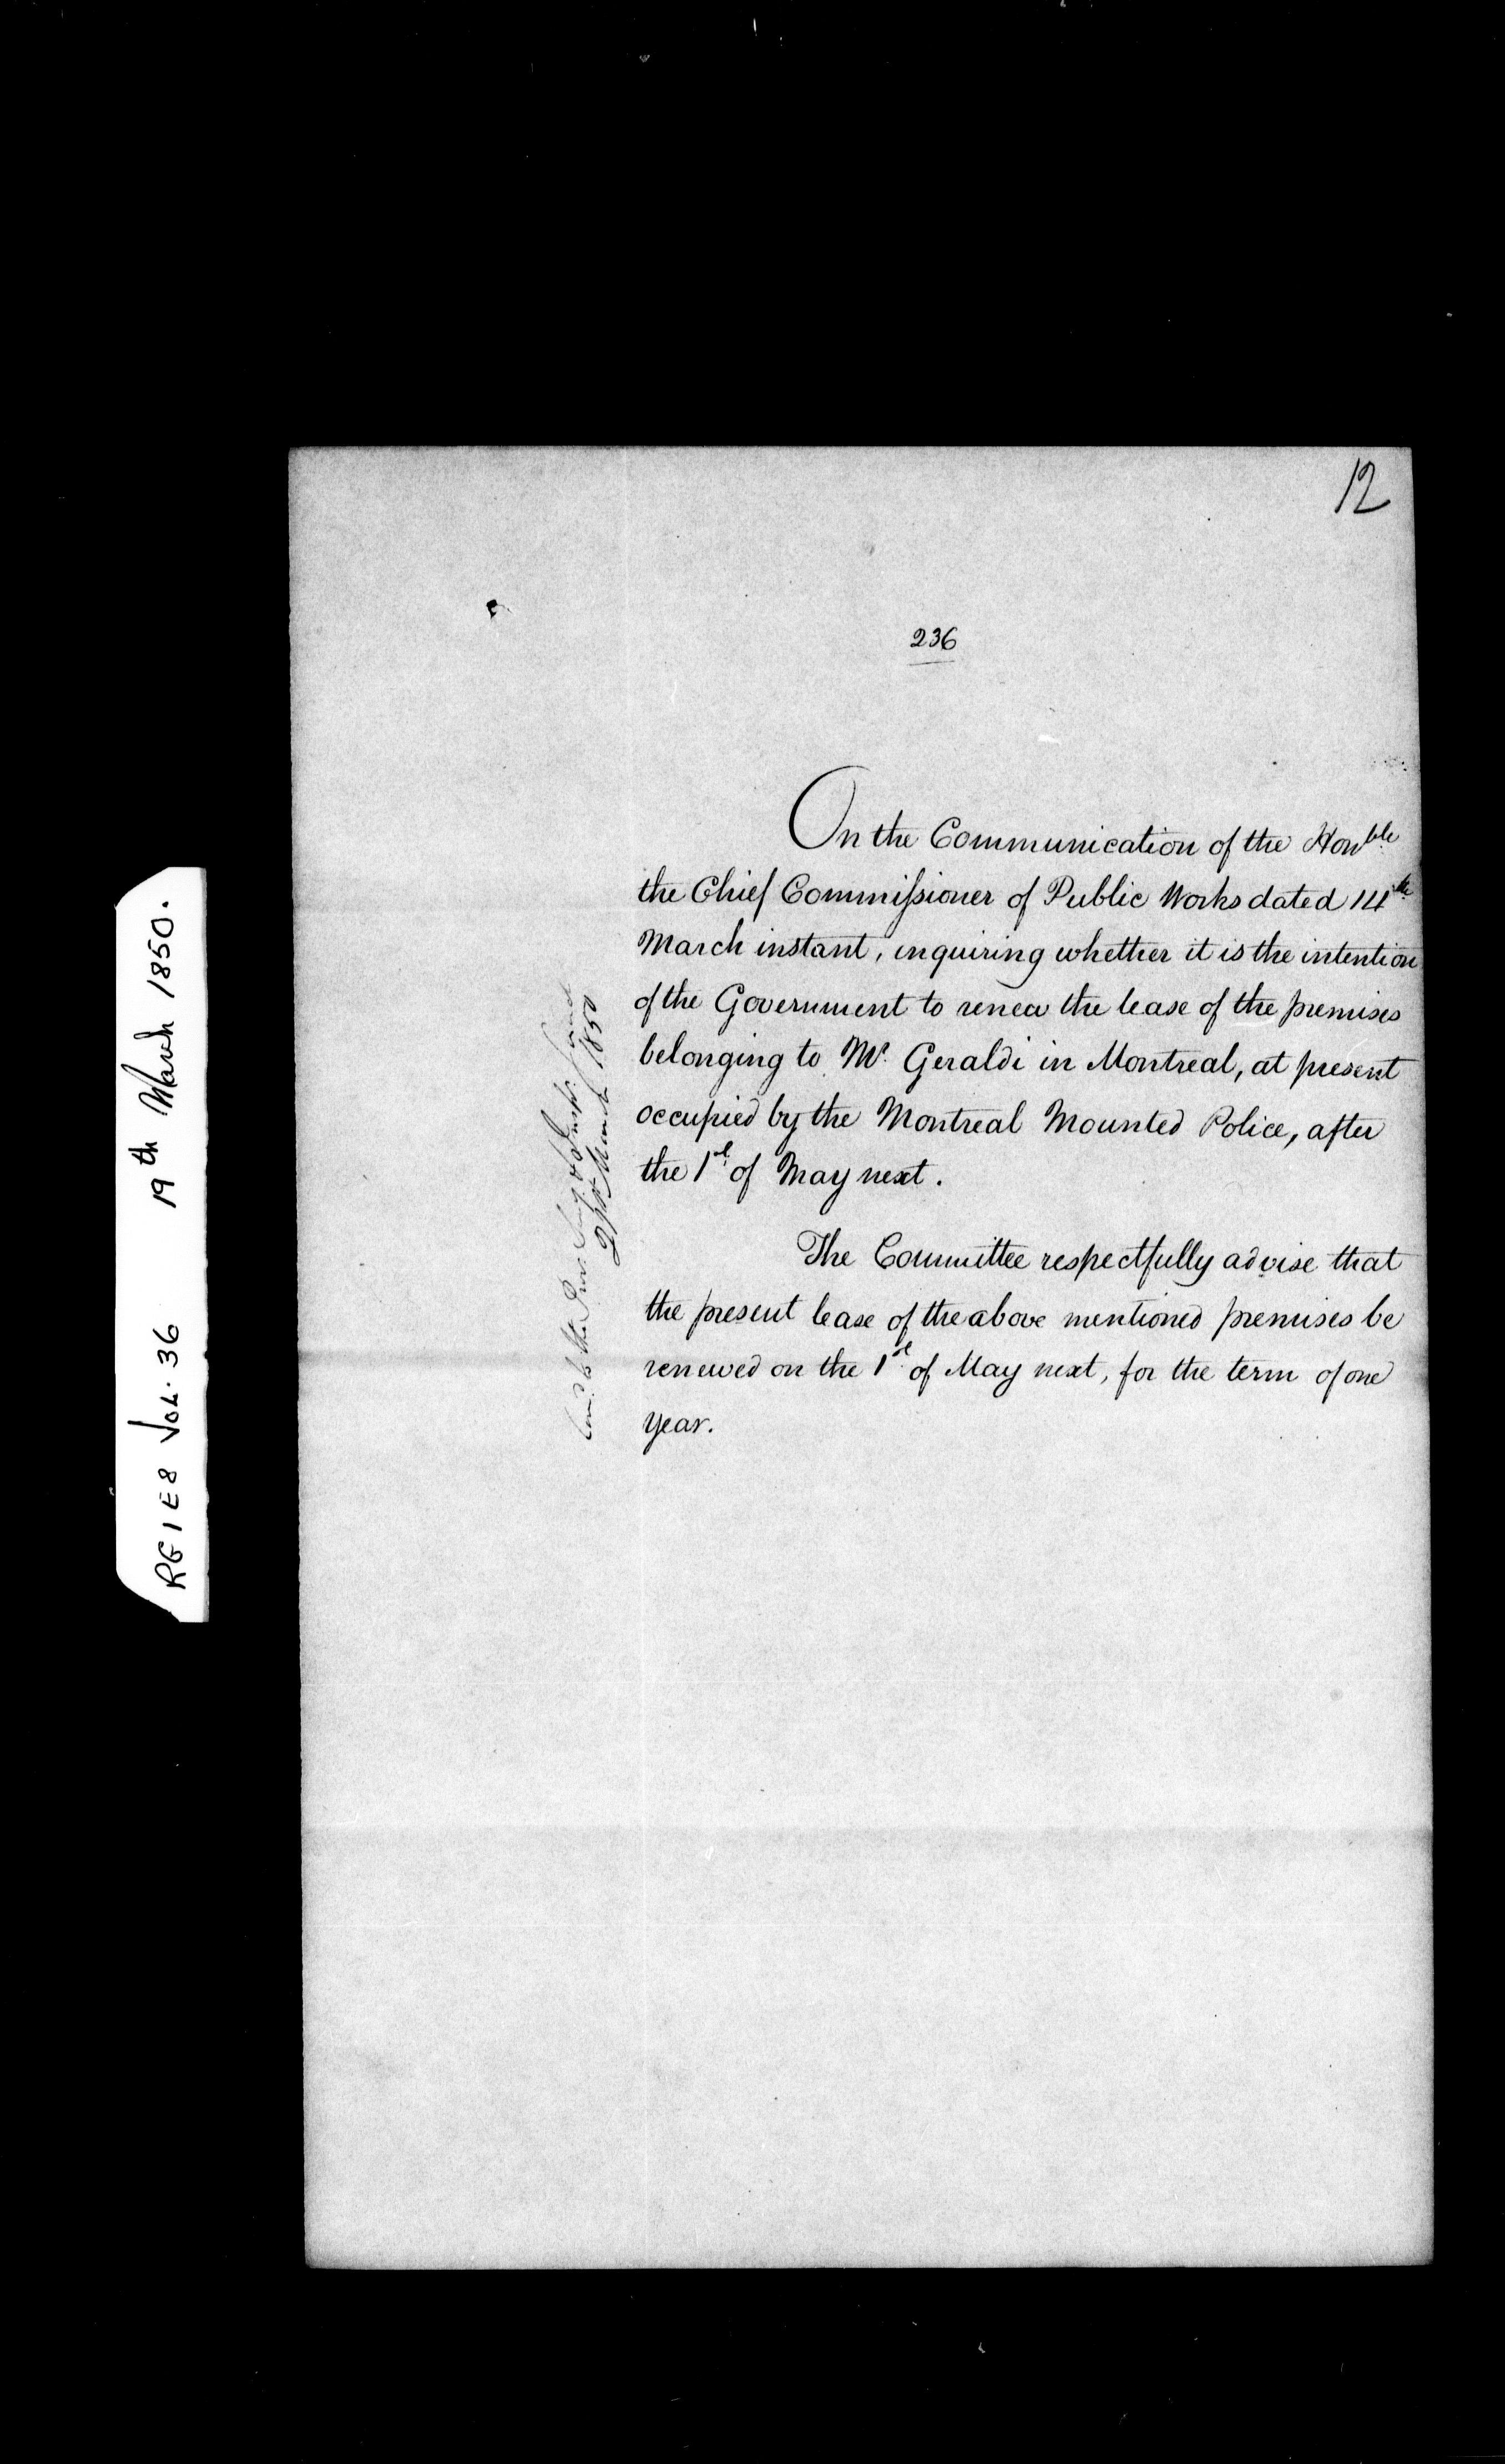 12
236
On the Communication of the Honble
the Chief Commissioner of Public Works dated 14th
March instant, inquiring whether it is the intention
of the Government to renew the lease of the premises
belonging to Mr. Geraldi in Montreal, at present
occupied by the Montreal Mounted Police, after
the 1st of May next.
The Committee respectfully advise that
the present lease of the above mentioned premises be
renewed on the 1st of May next, for the term of one
year.
to the
March 1850
RG 1 E8 Vol. 36 19th March 1850.